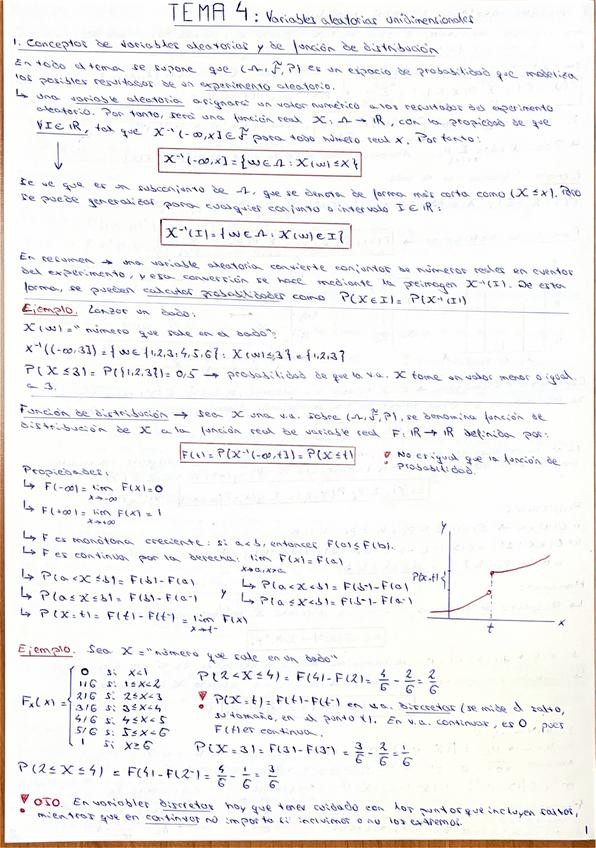 TEMA 4: Variables aleatorias unidimensionales
1. Conceptos de variables aleatorias y de función de distribución
En todo el tema se supone que (Ω, F, P) es un espacio de probabilidad que modeliza
los posibles resultados de un experimento aleatorio.
↳ una variable aleatoria asignará un valor numérico a los resultados del experimento
aleatorio. Por tanto, será una función real X: Ω → ℝ, con la propiedad de que
∀I∈ℝ, tal que X⁻¹(-∞,x]∈F para todo número real x. Por tanto:
X⁻¹(-∞,x] = {w∈Ω : X(w)≤x}
Se ve que es un subconjunto de Ω, que se denota de forma más corta como (X≤x). Esto
se puede generalizar para cualquier conjunto o intervalo I∈ℝ:
X⁻¹(I) = {w∈Ω : X(w)∈I}
En resumen → una variable aleatoria convierte conjuntos de números reales en eventos
del experimento, y esa conversión se hace mediante la preimagen X⁻¹(I). De esta
forma, se pueden calcular probabilidades como P(X∈I) = P(X⁻¹(I))
Ejemplo. Lanzar un dado:
X(w) = "número que sale en el dado"
X⁻¹((-∞,3]) = {w∈{1,2,3,4,5,6} : X(w)≤3} = {1,2,3}
P(X≤3) = P({1,2,3}) = 0,5 → probabilidad de que la v.a. X tome un valor menor o igual
a 3.
Función de distribución → sea X una v.a. sobre (Ω, F, P), se denomina función de
distribución de X a la función real de variable real F: ℝ → ℝ definida por:
F(t) = P(X⁻¹(-∞,t]) = P(X≤t)
! No es igual que la función de
probabilidad.
Propiedades:
↳ F(-∞) = lim F(x) = 0
x→-∞
↳ F(+∞) = lim F(x) = 1
x→+∞
↳ F es monótona creciente: si a<b, entonces F(a)≤F(b).
↳ F es continua por la derecha: lim F(x) = F(a)
x→a, x>a
↳ P(a<X≤b) = F(b) - F(a) y ↳ P(a<X<b) = F(b⁻) - F(a)
↳ P(a≤X≤b) = F(b) - F(a⁻) ↳ P(a≤X<b) = F(b⁻) - F(a⁻)
↳ P(X=t) = F(t) - F(t⁻) = lim F(x)
x→t⁻
y
P(X=t){
t
x
Ejemplo. Sea X = "número que sale en un dado"
Fx(x) = {
0 si x<1
1/6 si 1≤x<2
2/6 si 2≤x<3
3/6 si 3≤x<4
4/6 si 4≤x<5
5/6 si 5≤x<6
1 si x≥6
P(2<X≤4) = F(4) - F(2) = 4/6 - 2/6 = 2/6
! P(X=t) = F(t) - F(t⁻) en v.a. discretas (se mide el salto,
su tamaño, en el punto t). En v.a. continuas, es 0, pues
F(t) es continua.
P(X=3) = F(3) - F(3⁻) = 3/6 - 2/6 = 1/6
P(2≤X≤4) = F(4) - F(2⁻) = 4/6 - 1/6 = 3/6
! OJO. En variables discretas hay que tener cuidado con los puntos que incluyen saltos,
mientras que en continuas no importa si incluimos o no los extremos.
1